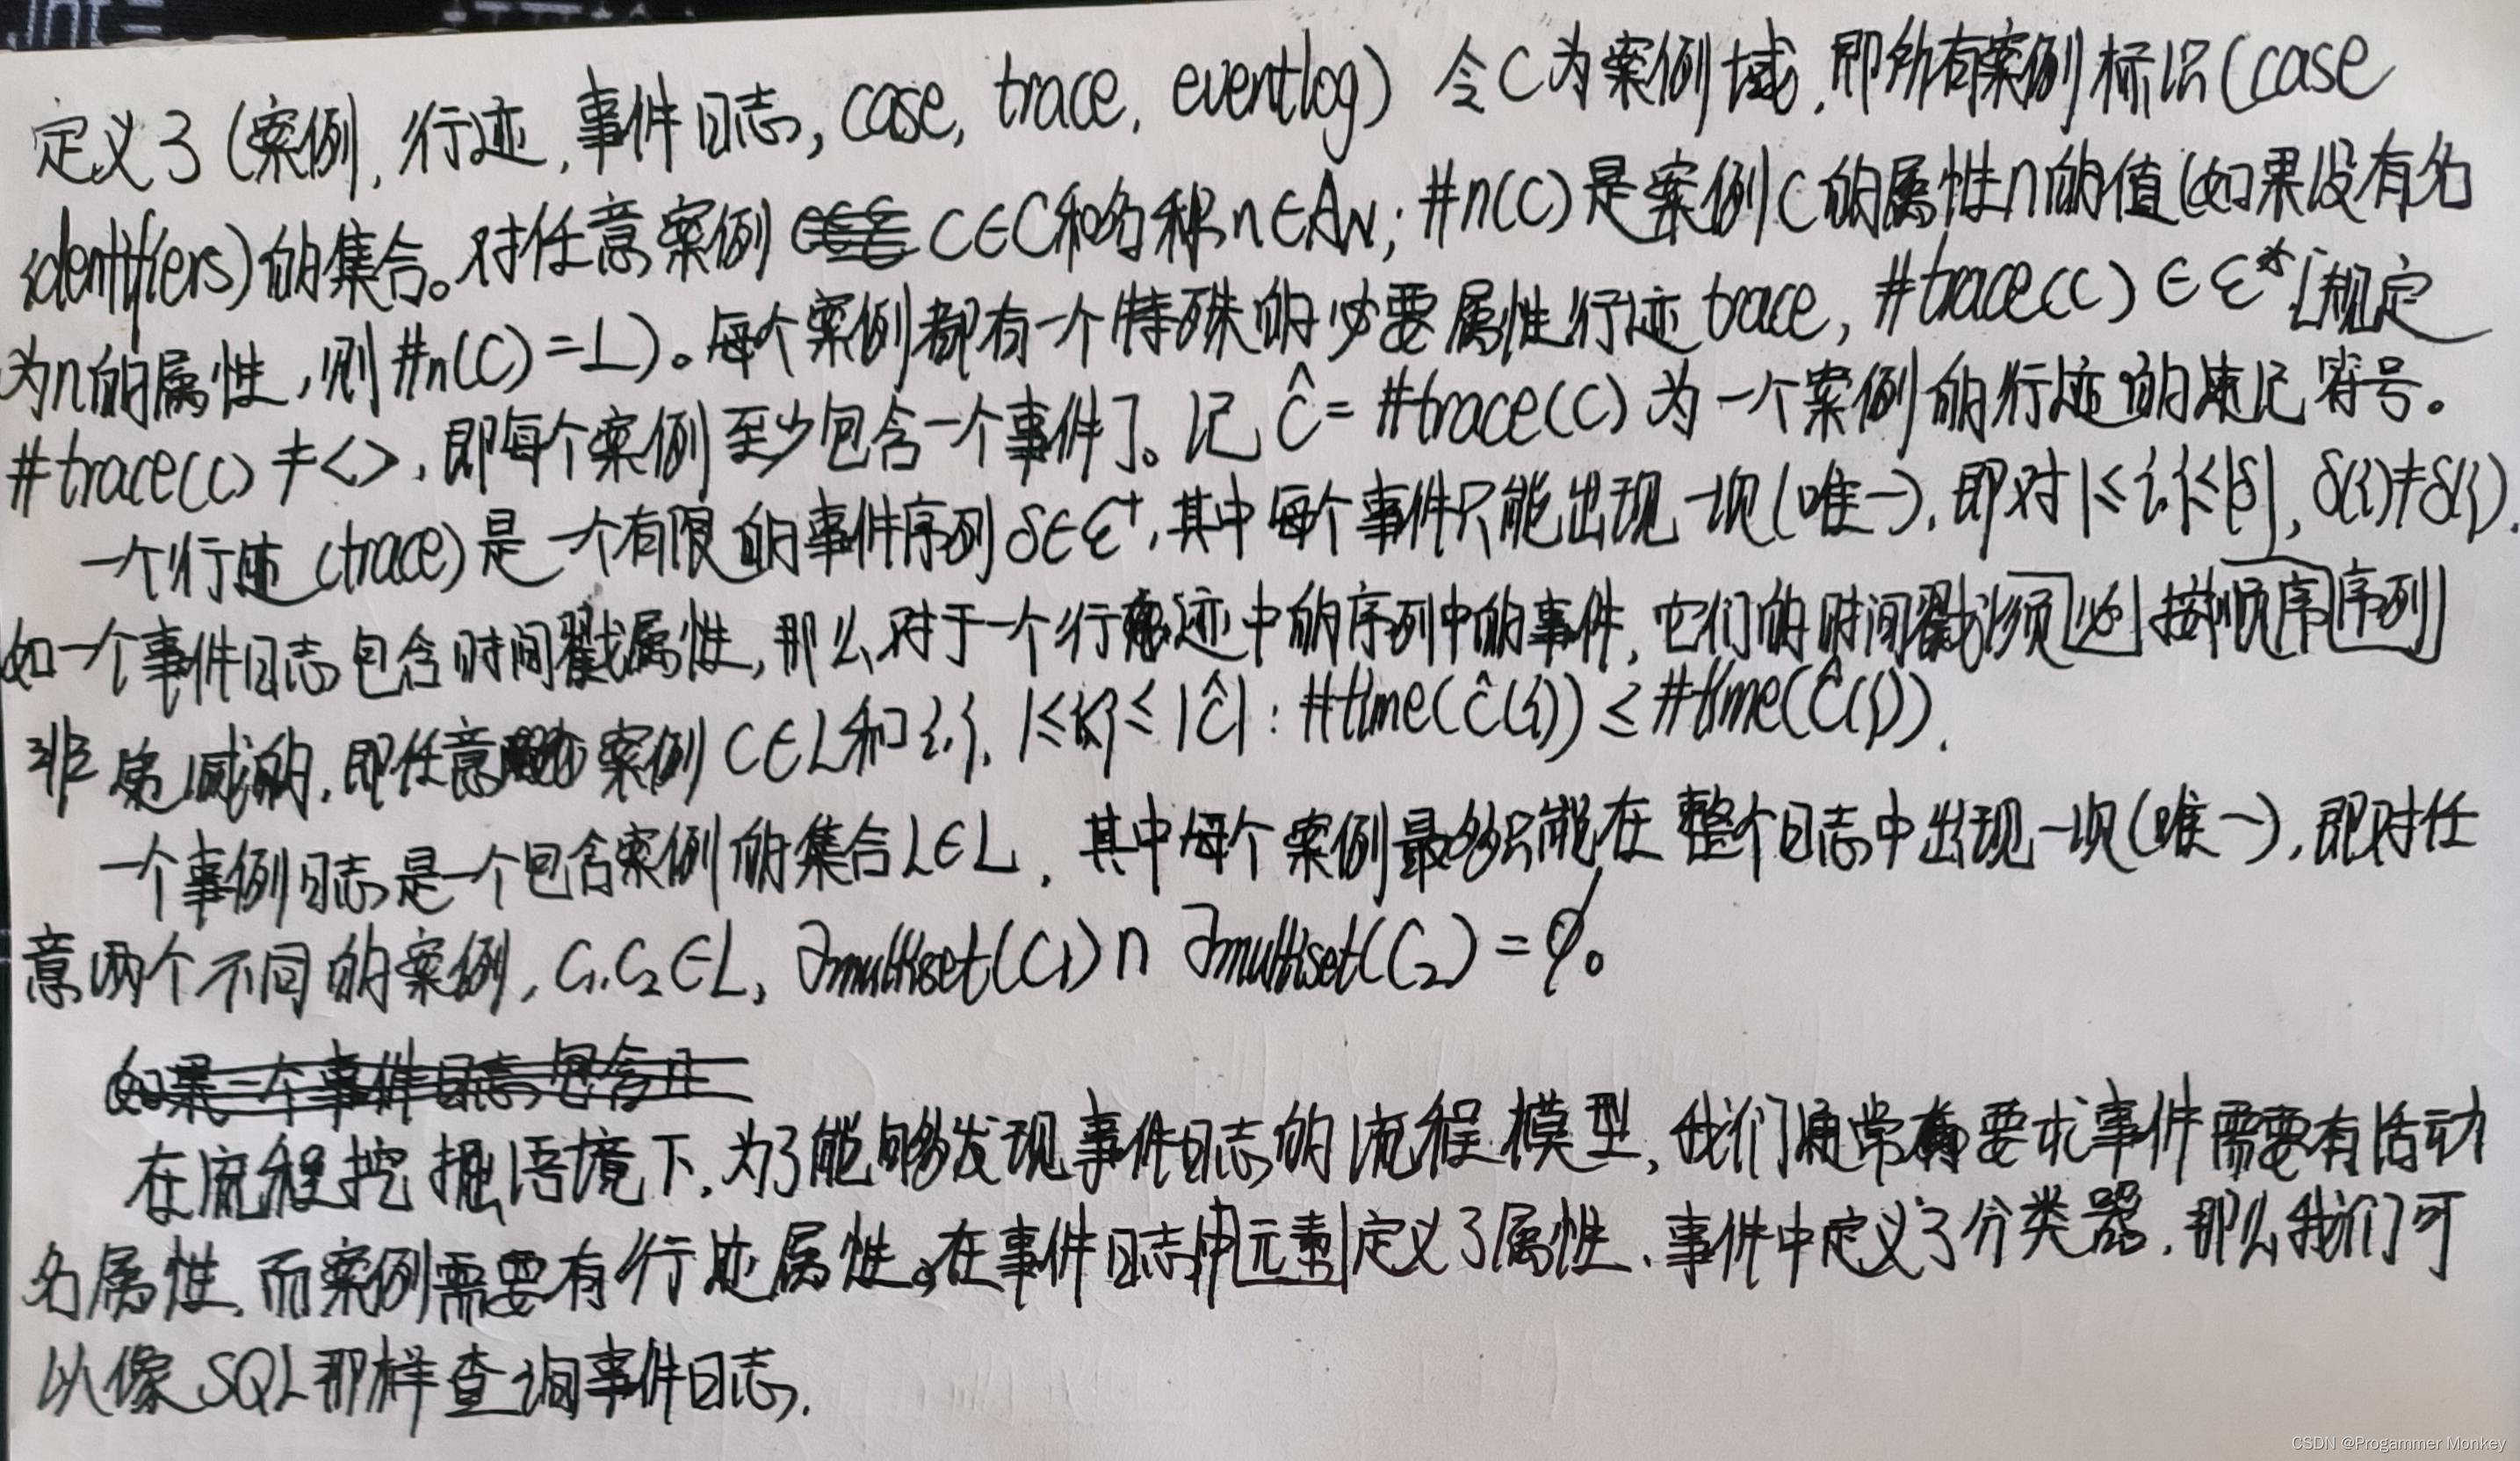 定义3（案例，行迹，事件日志，case，trace，eventlog）令C为案例域，即所有案例标识（case
identifiers）的集合。对任意案例 C∈C和名称n∈AN；#n(C)是案例C的属性n的值（如果没有名
为n的属性，则#n(C)=⊥）。每个案例都有一个特殊的必要属性行迹trace，#trace(c)∈ε*［规定
#trace(c)≠<>，即每个案例至少包含一个事件］。记ĉ=#trace(C)为一个案例的行迹的速记符号。
一个行迹（trace）是一个有限的事件序列δ∈ε⁺，其中每个事件只能出现一次（唯一），即对1≤i<j≤|δ|，δ(i)≠δ(j)。
如一个事件日志包含时间戳属性，那么对于一个行迹中的序列中的事件，它们的时间戳须必按顺序序列
非递减的，即任意案例C∈L和i,j，1≤i<j≤|ĉ|：#time(ĉ(i))≤#time(ĉ(j))．
一个事例日志是一个包含案例的集合L∈L，其中每个案例最多只能在整个日志中出现一次（唯一），即对任
意两个不同的案例，C₁,C₂∈L，∂multiset(C₁)∩∂multiset(C₂)=∅。
如果一个事件日志包含
在流程挖掘语境下，为了能够发现事件日志的流程模型，我们通常要求事件需要有活动
名属性，而案例需要有行迹属性。在事件日志中元素定义了属性、事件中定义了分类器，那么我们可
以像SQL那样查询事件日志．
CSDN @Progammer Monkey